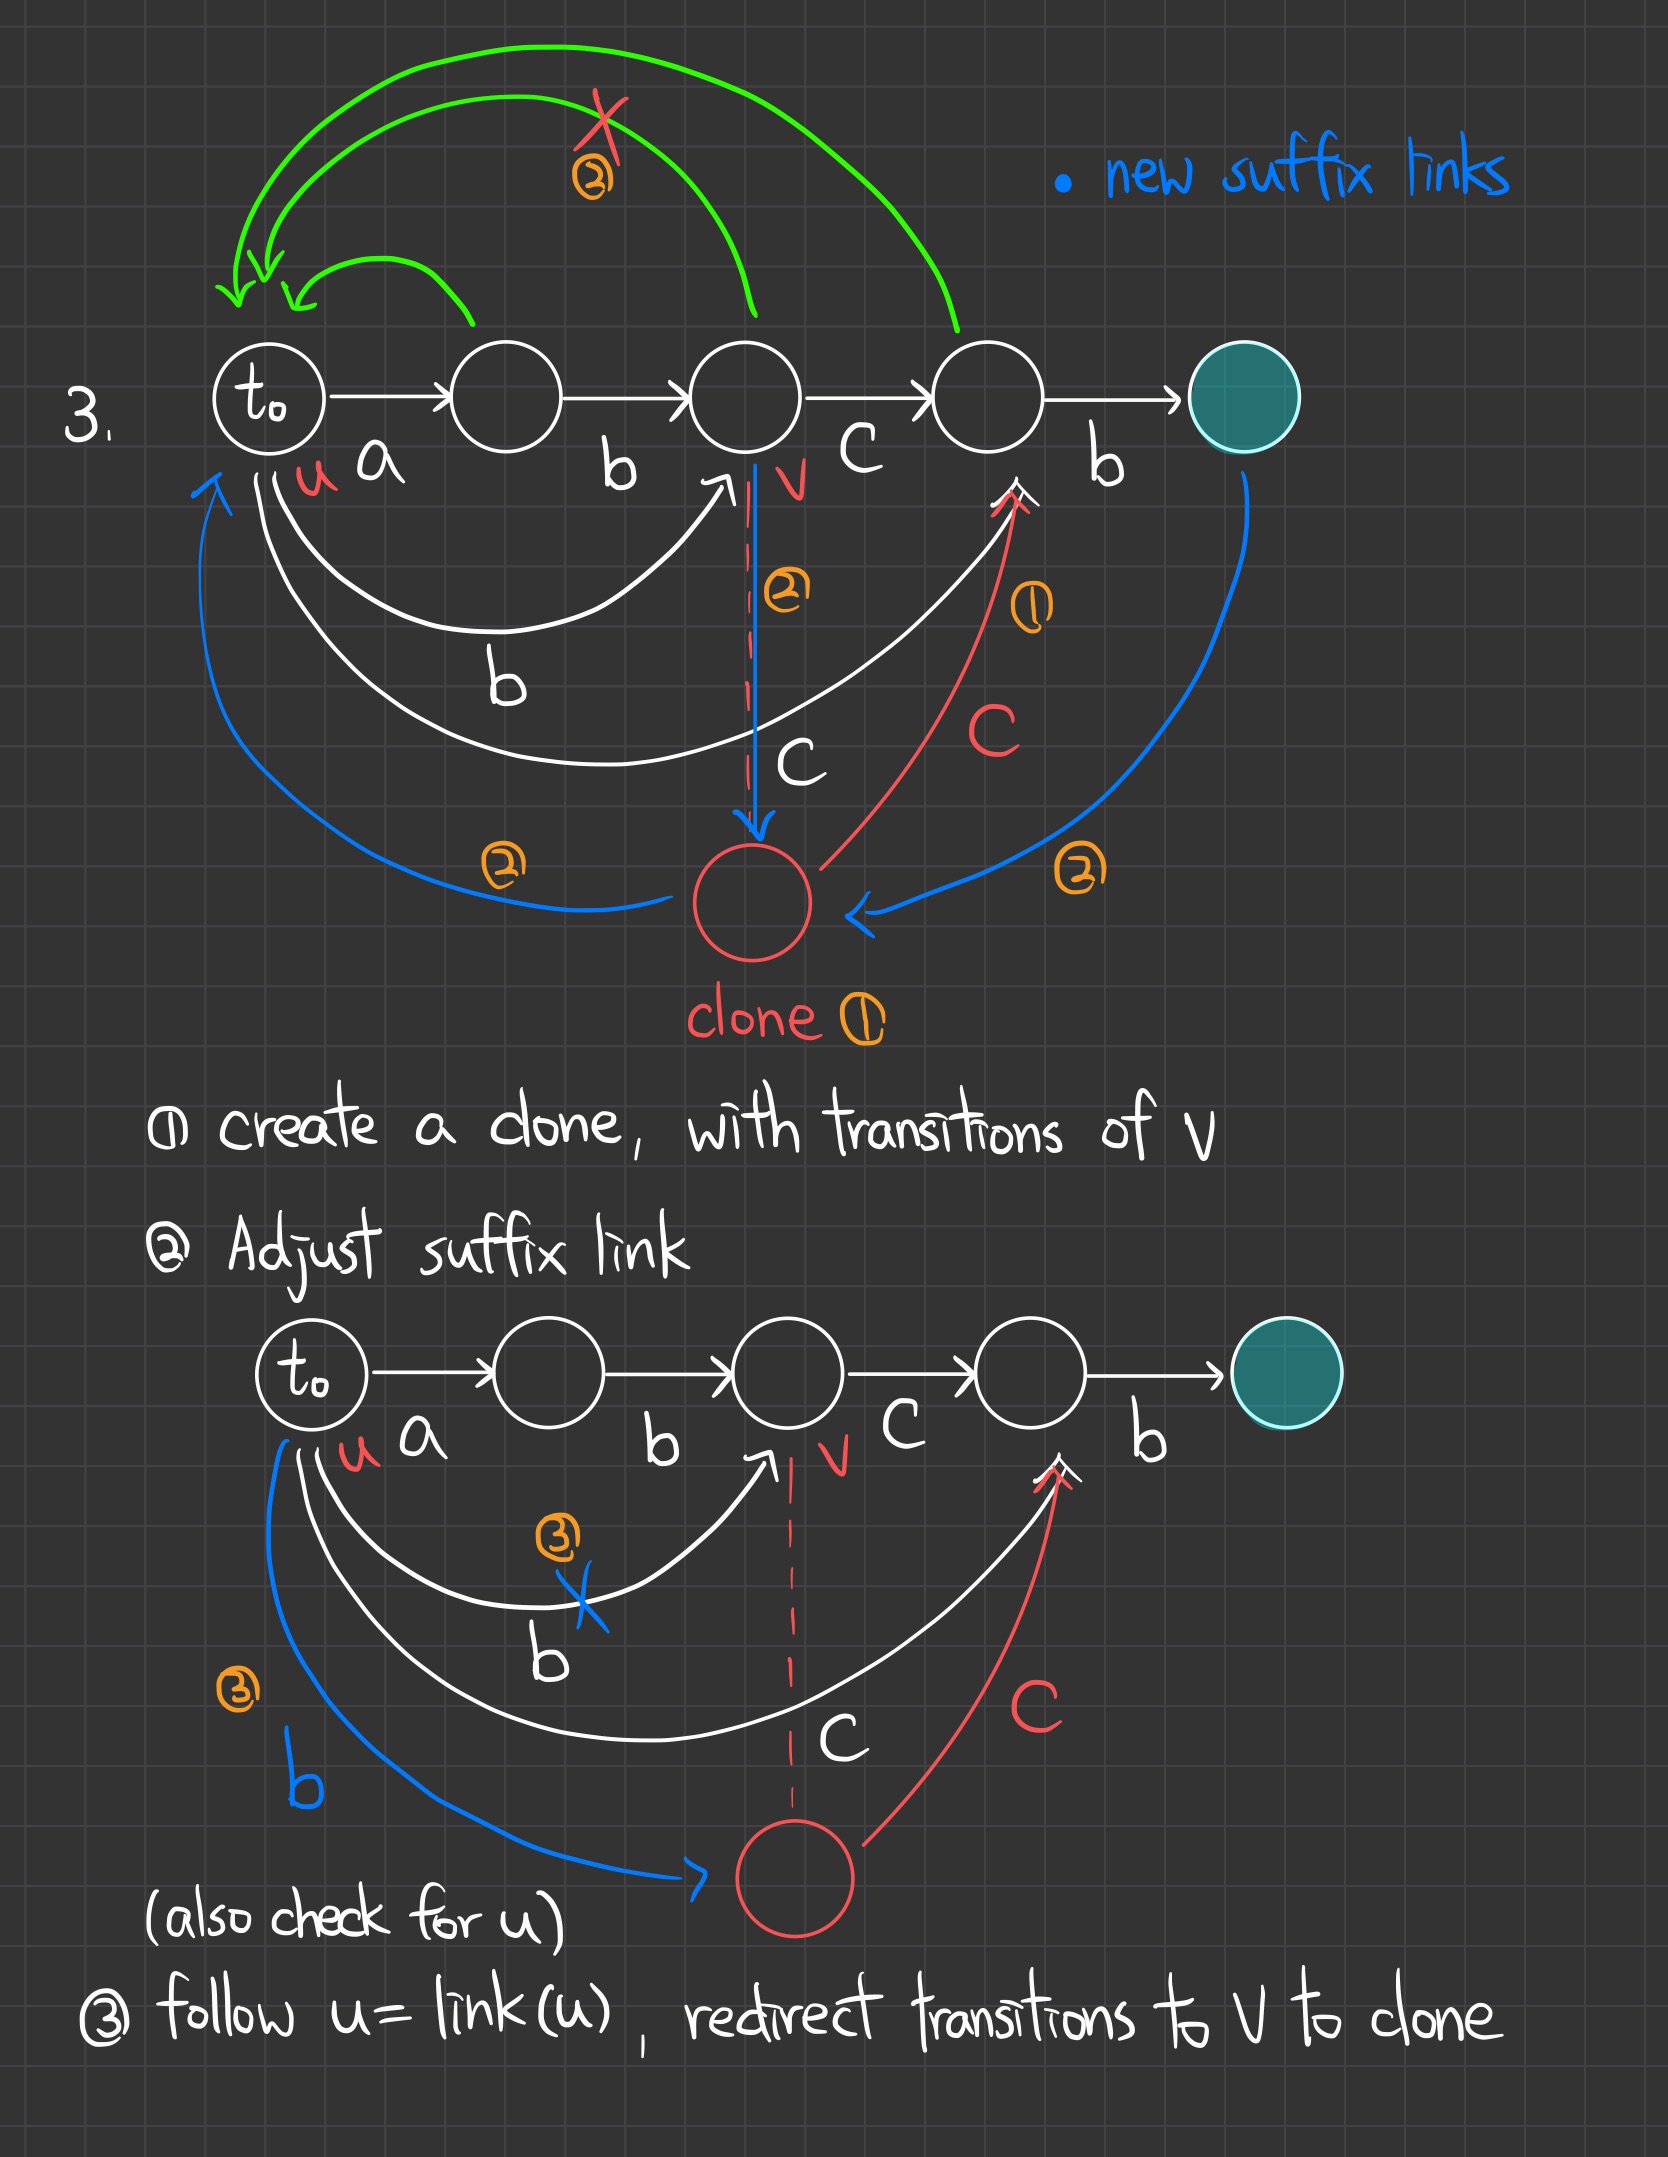 ②
• new suffix links
3.
t₀
u a b v c b
②
①
b
c
c
②
②
clone ①
① create a clone, with transitions of v
② Adjust suffix link
t₀
u a b v c b
③
b
③
c
c
b
(also check for u)
③ follow u = link(u), redirect transitions to v to clone